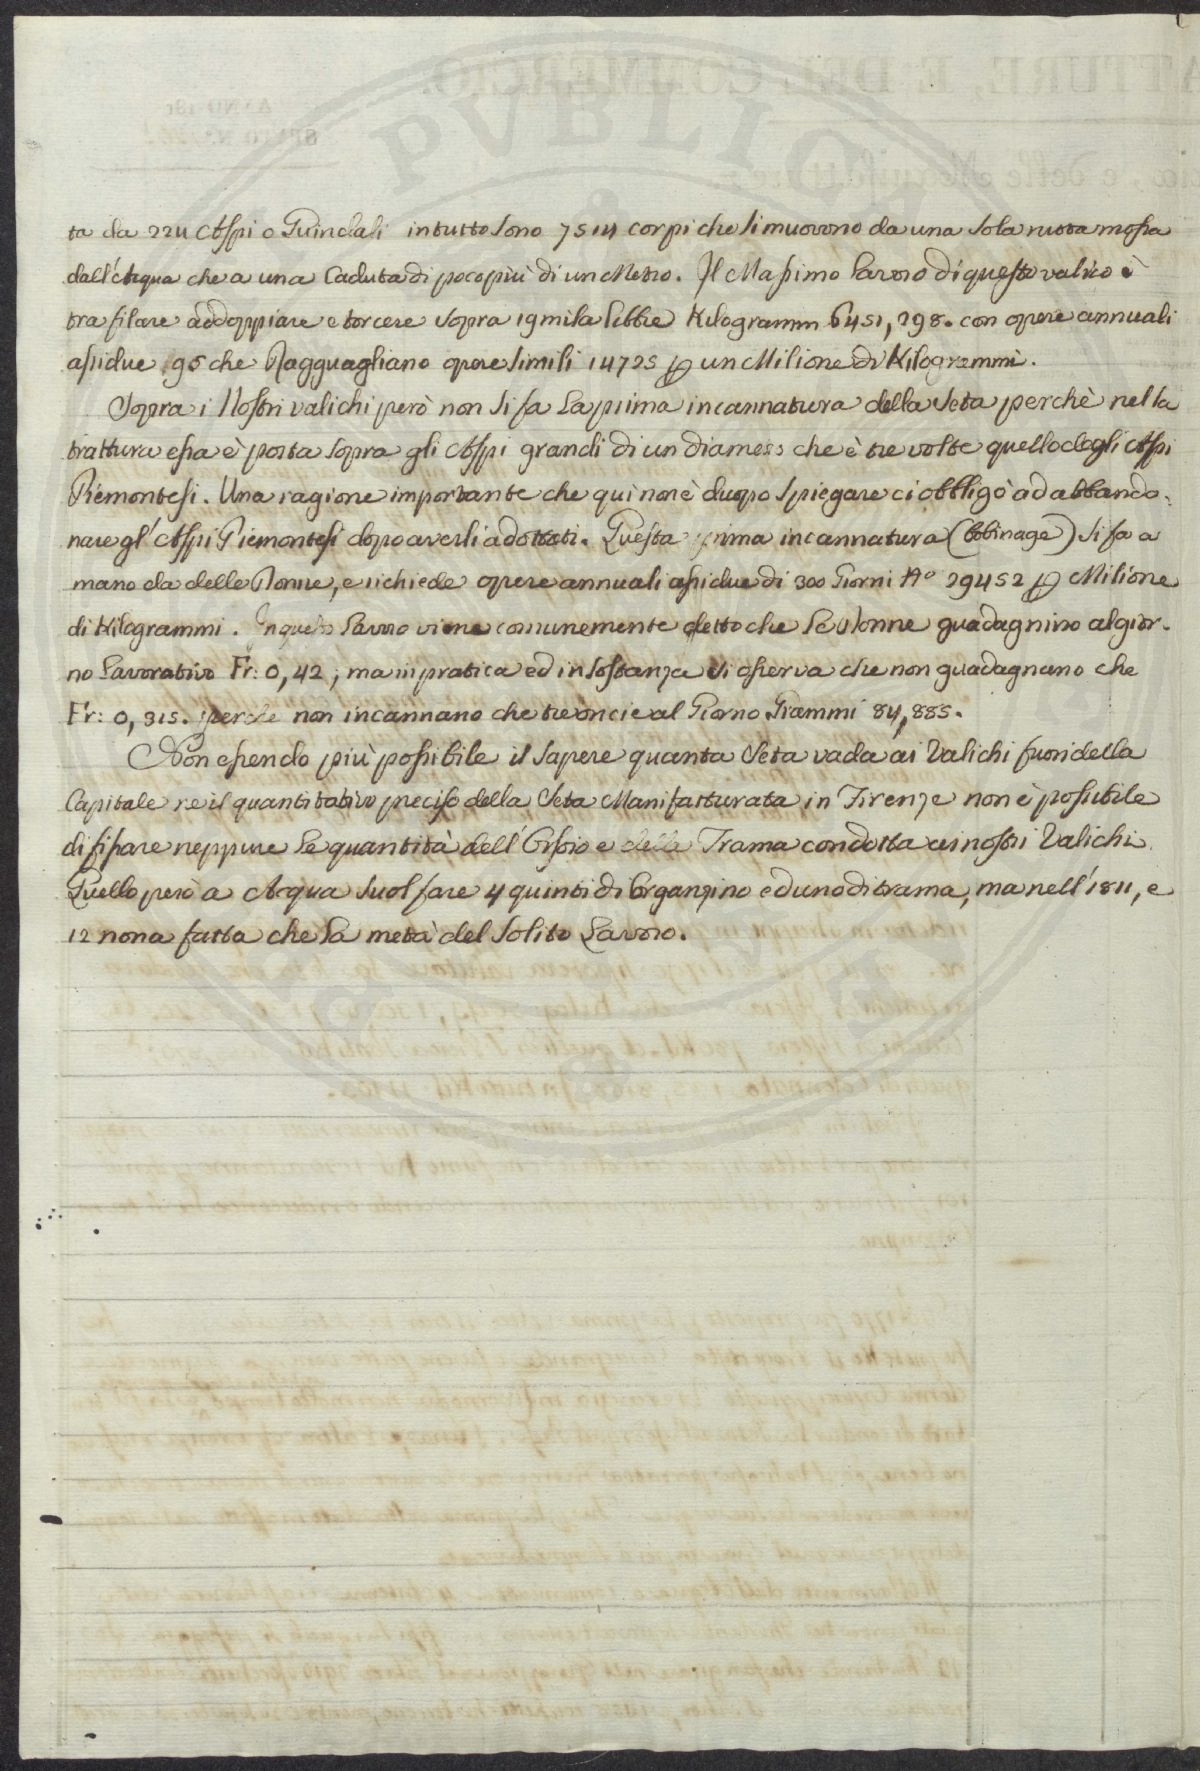 ta da 224 Aspi o Guindali in tutto sono 7514 corpi che si muovono da una sola ruota mossa
dall'Acqua che a una Caduta di poco più di un Metro. Il Massimo Lavoro di questo valico è
tra filare addoppiare e torcere sopra 19 mila libbre Kilogramm 6451,298. con opere annuali
assidue 95 che Ragguagliano opere simili 14725 ꝑ un Milione di Kilogrammi.
Sopra i Nostri valichi però non si fa la prima incannatura della Seta perchè nella
trattura essa è posta sopra gli Aspi grandi di un diametro che è tre volte quello degli Aspi
Piemontesi. Una ragione importante che qui non è duopo spiegare ci obbligò ad abbando-
nare gl'Aspi Piemontesi dopo averli adottati. Questa prima incannatura (bobinage) si fa a
mano da delle Donne, e richiede opere annuali assidue di 300 Giorni No 29452 ꝑ Milione
di Kilogrammi. In questo Lavoro viene comunemente detto che le donne guadagnino al gior-
no Lavorativo Fr: 0,42; ma in pratica ed in sostanza si osserva che non guadagnano che
Fr: 0,315. perche non incannano che tre oncie al Giorno Grammi 84,885.
Non essendo più possibile il sapere quanta Seta vada ai Valichi fuori della
Capitale ne il quantitativo preciso della Seta Manifatturata in Firenze non è possibile
di fissare neppure le quantità dell'Orsoio e della Trama condotta ai nostri Valichi.
Quello però a Acqua suol fare 4 quinti di Organzino ed uno di trama, ma nell'1811, e
12 non a fatta che la metà del solito Lavoro.